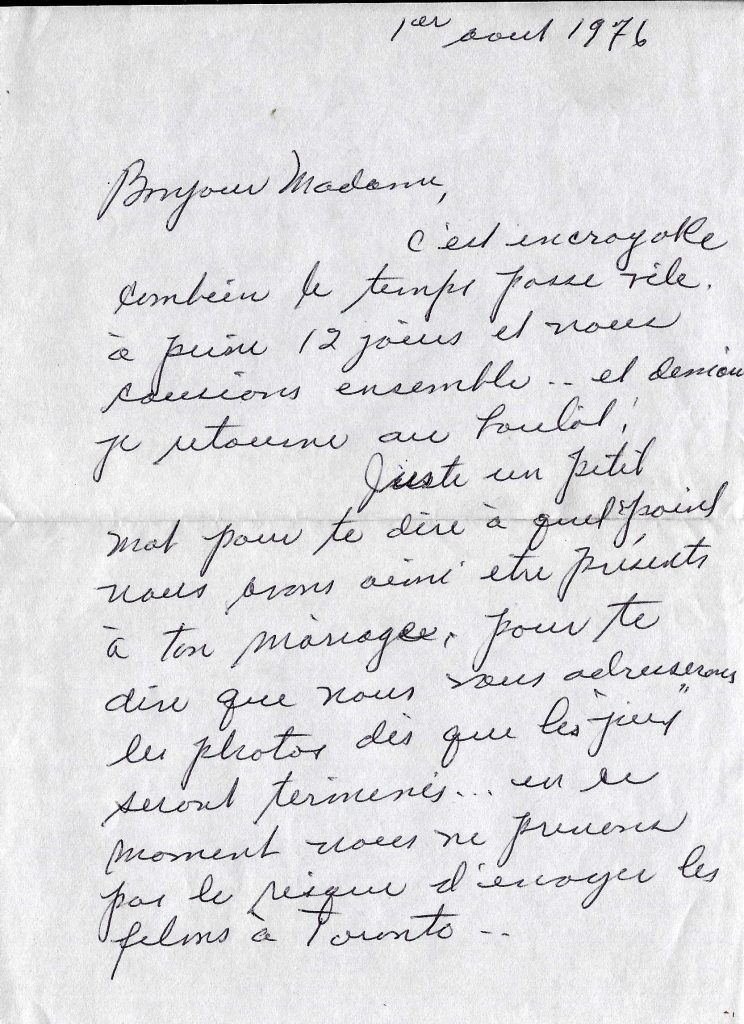 1er aout 1976
Bonjour Madame,
c'est incroyable
combien le temps passe vite.
à peine 12 jours et nous
causions ensemble.. et demain
je retourne au boulot!
Juste un petit
mot pour te dire à quel point
nous avons aimé etre présents
à ton mariage, pour te
dire que nous vous adresserons
les photos dès que les "jeux"
seront terminés... en ce
moment nous ne prenons
pas le risque d'envoyer les
films à Toronto..